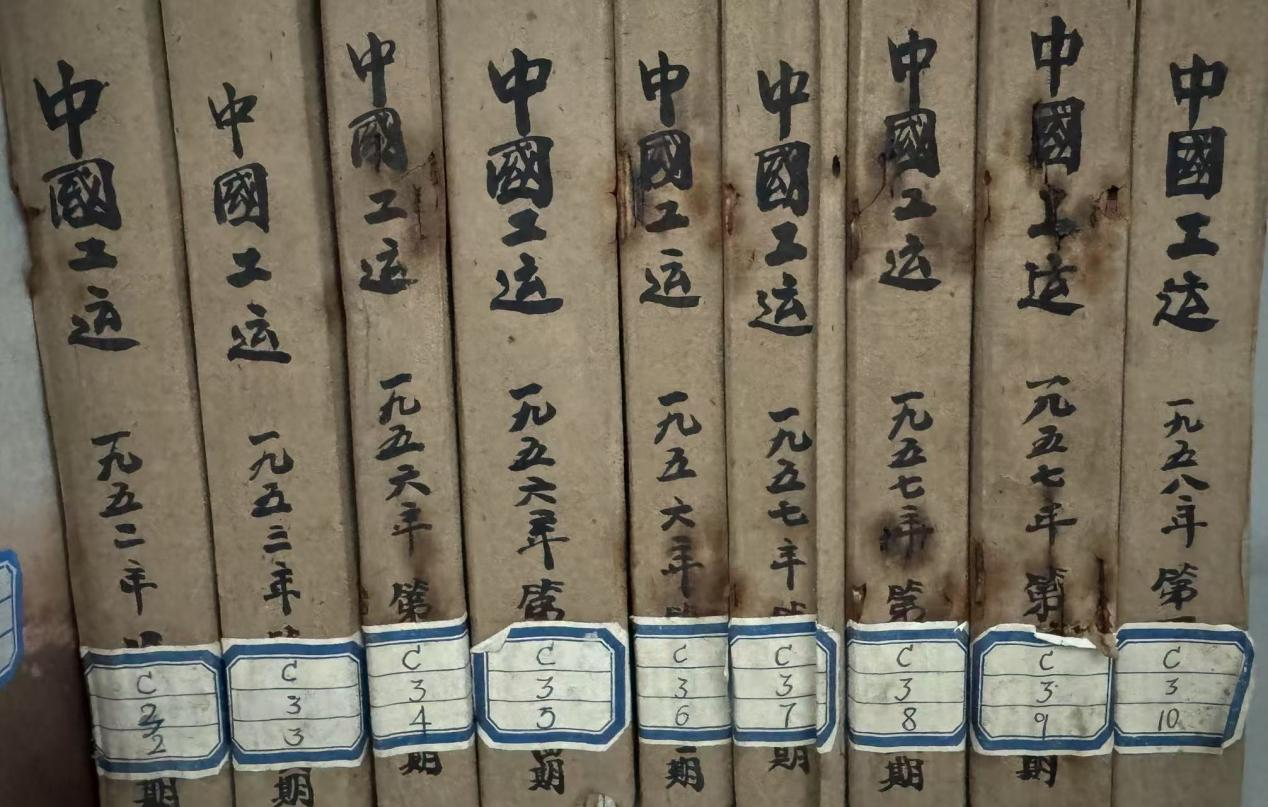 中國工运 一九五二年
期
C
3
2
中國工运 一九五三年
期
C
3
3
中國工运 一九五六年 第
期
C
3
4
中國工运 一九五六年 第
期
C
3
5
中國工运 一九五六年
期
C
3
6
中國工运 一九五七年
期
C
3
7
中國工运 一九五七年 第
期
C
3
8
中國工运 一九五七年 第
期
C
3
9
中國工运 一九五八年 第
C
3
10